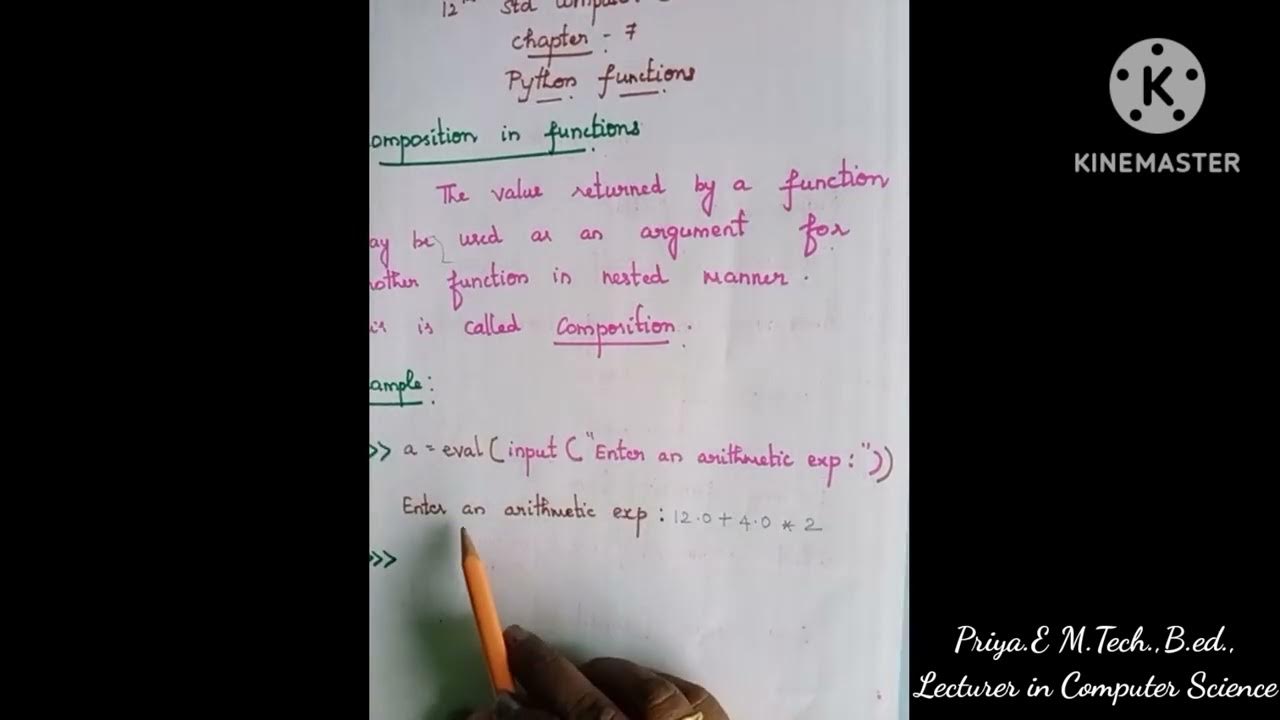 12th Std
chapter - 7
Python functions
omposition in functions
The value returned by a function
ay be used as an argument for
nother function in nested manner.
is is called Composition.
ample:
>> a = eval(input("Enter an arithmetic exp:"))
Enter an arithmetic exp: 12.0 + 4.0 * 2
>>>
K
KINEMASTER
Priya.E M.Tech.,B.ed.,
Lecturer in Computer Science